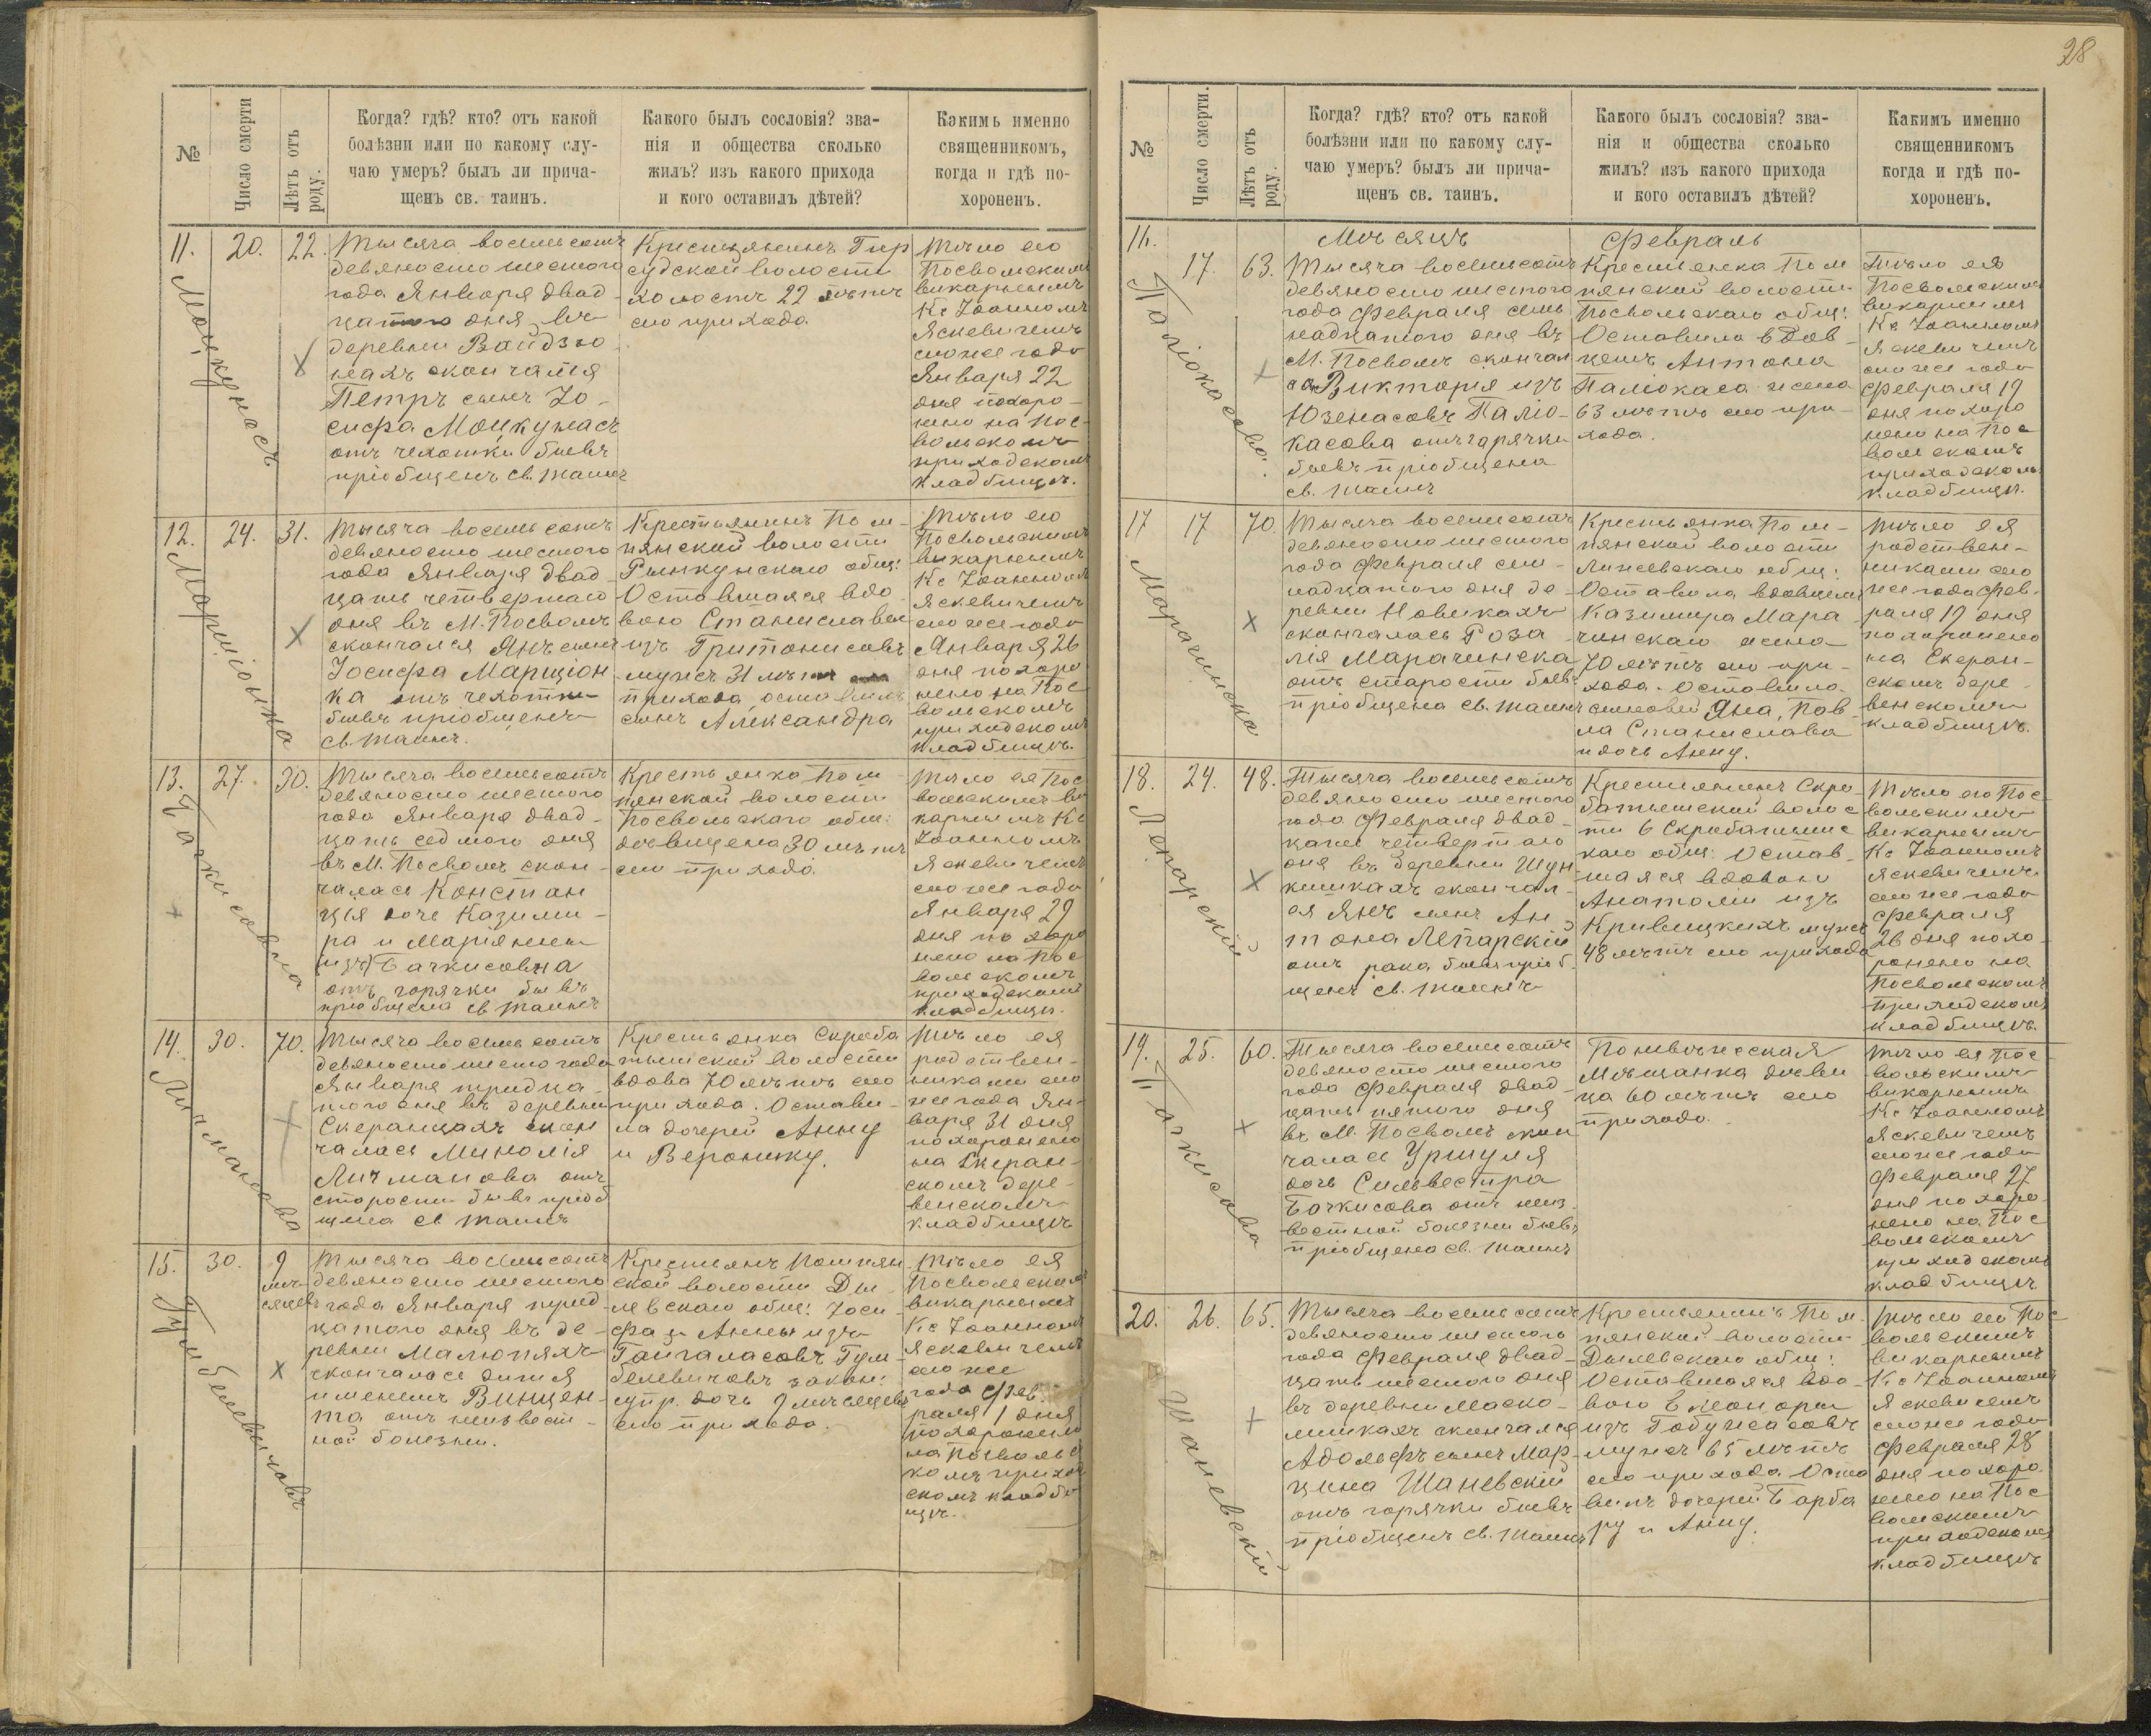 28
№
Число смерти
Лѣтъ отъ роду.
Когда? гдѣ? кто? отъ какой
болѣзни или по какому слу-
чаю умеръ? былъ ли прича-
щенъ св. таинъ.
Какого былъ сословія? зва-
нія и общества сколько
жилъ? изъ какого прихода
и кого оставилъ дѣтей?
Какимъ именно
священникомъ,
когда и гдѣ по-
хороненъ.
11.
20.
22.
Моцкунасъ
Тысяча восемьсотъ
девяносто шестого
года Января двад
цатого дня въ
деревни Вайдзю
нахъ скончался
Петръ сынъ Іо-
сифа Моцкунасъ
отъ чехотки бывъ
пріобщенъ св. таинъ
Крестьянинъ Гир
судской волости
холостъ 22 лѣтъ
сего прихода.
Тѣло его
Посвольскимъ
викарнымъ
Кс Іоанномъ
Яскевичемъ
сего же года
Января 22
дня похоро-
нено на Пос-
вольскомъ
приходскомъ
кладбищѣ.
12.
24.
31.
Марціонка
Тысяча восемьсотъ
девяносто шестого
года Января двад
цать четвертаго
дня въ М. Посволѣ
скончался Янъ сынъ
Іосифа Марціон
ка отъ чехотки
бывъ пріобщенъ
св. таинъ.
Крестьянинъ Пом-
пянской волости
Рынкунскаго общ:
Оставшаяся вдо-
вою Станиславы
изъ Гритонисовъ
мужъ 31 лѣтъ
прихода, оставилъ
сынъ Александра
Тѣло его
Посвольскимъ
викарнымъ
Кс Іоанномъ
Яскевичемъ
сего же года
Января 26
дня похоро
нено на Пос
вольскомъ
приходскомъ
кладбищѣ.
13.
27.
30.
Бачкисовна
Тысяча восемьсотъ
девяносто шестого
года Января двад-
цать седмого дня
въ М. Посволѣ скон-
чалась Констан
ція дочь Казими-
ра и Маріянны
изъ Бачкисовна
отъ горячки бывъ
пріобщена св. таинъ
Крестьянка Пом
пянской волости
Посвольскаго общ:
дѣвица 30 лѣтъ
сего прихода.
Тѣло ея Пос
вольскимъ ви
карнымъ Кс
Іоанномъ
Яскевичемъ
сего же года
Января 29
дня похоро
нено на Пос
вольскомъ
приходскомъ
кладбищѣ.
14.
30.
70.
Личманова
Тысяча восемьсотъ
девяносто шесто года
Января тридца-
того дня въ деревни
Скеранцахъ скон
чалась Минолія
Личманова отъ
старости бывъ пріоб
щена св таинъ
Крестьянка Скроба
тышской волости
вдова 70 лѣтъ сего
прихода. Остави-
ла дочерей Анну
и Веронику.
Тѣло ея
родствен-
никами сего
же года Ян-
варя 31 дня
похоронено
на Скеран-
скомъ дере-
венскомъ
кладбищѣ
15.
30.
9
мѣ-
сяцевъ
Гумбелевичовъ
Тысяча восемьсотъ
девяносто шестого
года Января трид-
цатого дня въ де-
ревни Малюпяхъ
скончалась дитя
именемъ Винцен-
та отъ неизвест-
ной болезни.
Крестьянъ Помпян
ской волости Ды-
левскаго общ: Іоси-
фа и Анны изъ
Гайгаласовъ Гум-
белевичовъ закон:
супр. дочь 9 мѣсяцевъ
сего прихода.
Тѣло ея
Посвольскимъ
викарнымъ
Кс Іоанномъ
Яскевичемъ
сего же
года Фев
раля 1 дня
похоронено
на Посволь
комъ приход
скомъ кладби
щѣ.
№
Число смерти.
Лѣтъ отъ роду.
Когда? гдѣ? кто? отъ какой
болѣзни или по какому слу-
чаю умеръ? былъ ли прича-
щенъ св. таинъ.
Какого былъ сословія? зва-
нія и общества сколько
жилъ? изъ какого прихода
и кого оставилъ дѣтей?
Какимъ именно
священникомъ
когда и гдѣ по-
хороненъ.
Мѣсяцъ Февраль
16.
17.
63.
Паліокасова.
Тысяча восемьсотъ
девяносто шестого
года Февраля семь
надцатого дня въ
М. Посволѣ скончал
ась Викторія изъ
Юзенасовъ Паліо-
касова отъ гарячки
бывъ пріобщена
св. таинъ
Крестьянка Пом
пянской волости
Посвольскаго общ:
Оставила вдов-
цемъ Антона
Паліокаса жена
63 лѣтъ сего при-
хода.
Тѣло ея
Посвольскимъ
викарнымъ
Кс Іоанномъ
Яскевичемъ
сего же года
Февраля 19
дня похоро
нено на Пос
вольскомъ
приходскомъ
кладбищѣ.
17
17
70
Марачинска
Тысяча восемьсотъ
девяносто шестого
года Февраля сем-
надцатого дня де
ревни Новикахъ
скончалась Роза-
лія Марачинска
отъ старости бывъ
пріобщена св. таинъ
Крестьянка Пом-
пянской волости
общ:
Оставила вдовцемъ
Казимира Мара
чинскаго жена
70 лѣтъ сего при-
хода. Оставила
сыновей Яна, Пав-
ла Станислава
и дочь Анну.
Тѣло ея
родствен-
никами сего
же года Фев-
раля 19 дня
похоронено
на Скеран-
скомъ дере-
венскомъ
кладбищѣ.
18.
24.
48.
Лепарскій
Тысяча восемьсотъ
девяносто шестого
года Февраля двад-
цать четвертаго
дня въ деревни Шун
кишкахъ скончал-
ся Янъ сынъ Ан
тона Лепарскій
отъ рака бывъ пріоб-
щенъ св. таинъ
Крестьянинъ Скро-
батышской волос
ти Скробатышс
каго общ: Остав-
шаяся вдовою
Анатоли изъ
Кривицкихъ мужъ
48 лѣтъ сего прихода
Тѣло его Пос
вольскимъ
викарнымъ
Кс Іоанномъ
Яскевичемъ
сего же года
Февраля
26 дня похо-
ронено на
Посвольскомъ
приходскомъ
кладбищѣ.
19.
25.
60.
Бачкисова
Тысяча восемьсотъ
девяносто шестого
года Февраля двад-
цать пятого дня
въ М. Посволѣ скон
чалась Уршуля
дочь Сильвестра
Бачкисова отъ неиз-
вестной болезни бывъ
пріобщена св. таинъ
Поневѣжеская
Мѣщанка дѣви
ца 60 лѣтъ сего
прихода.
Тѣло ея Пос-
вольскимъ
викарнымъ
Кс Іоанномъ
Яскевичемъ
сего же года
Февраля 27
дня похоро
нено на Пос
вольскомъ
приходскомъ
кладбищѣ
20.
26.
65.
Шаневскій
Тысяча восемьсотъ
девяносто шестого
года Февраля двад-
цать шестого дня
въ деревни Маско-
лишкахъ скончался
Адольфъ сынъ Мар-
цина Шаневскій
отъ горячки бывъ
пріобщенъ св. таинъ
Крестьянинъ Пом
пянской волости
Дылевскаго общ:
Оставшаяся вдо-
вою Елеоноры
изъ Гобужасовъ
мужъ 65 лѣтъ
сего прихода. Оста
вилъ дочерей Барба
ру и Анну.
Тѣло его Пос
вольскимъ
викарнымъ
Кс Іоанномъ
Яскевичемъ
сего же года
Февраля 28
дня похоро
нено на Пос
вольскомъ
приходскомъ
кладбищѣ